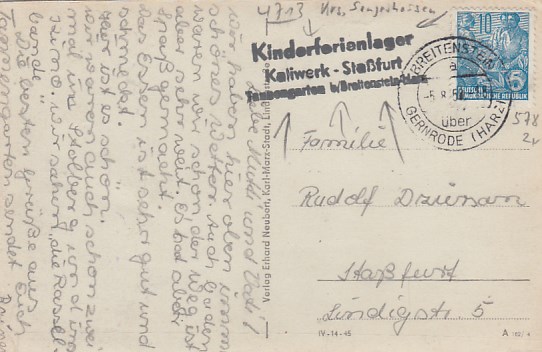 Liebe Mutti und Vati!
Wir haben hier oben immer
schönes Wetter. Auch baden
waren wir schon, der Weg ist
aber sehr weit. Es hat auch
Spaß gemacht.
Das Essen ist sehr gut und
schmeckt.
Hier ist es schön.
Wir waren auch schon zwei
mal in Stolberg und im
Kino. Wir sahen, "die Rassel
bande".
Die besten Grüße aus
Tannengarten sendet Euch
4713
Krs. Sangerhausen
Kinderferienlager
Kaliwerk - Staßfurt
Tannengarten b/Breitenstein
BREITENSTEIN
a
über
GERNRODE (HARZ)
10
5
DEUTSCHE DEMOKRATISCHE REPUBLIK
578
Familie
Rudolf
Staßfurt
Lindigstr. 5
Verlag Erhard Neubert, Karl-Marx-Stadt
IV-14-45
A